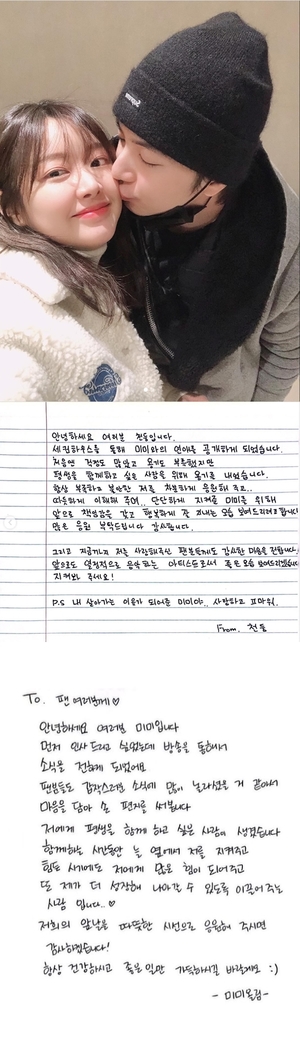 안녕하세요 여러분 천둥입니다.
세컨하우스를 통해 미미와의 연애를 공개하게 되었습니다.
처음엔 걱정도 많았고 용기도 부족했지만
평생을 함께하고 싶은 사람을 위해 용기를 내었습니다.
항상 부족하고 불안한 저를 차분하게 응원해 주고..
따뜻하게 이해해 주어.. 단단하게 지켜준 미미를 위해
앞으로 책임감을 갖고 행복하게 잘 지내는 모습 보여드리려고 합니다
많은 응원 부탁드립니다 감사합니다.
그리고 지금까지 저를 사랑해주신 팬분들께도 감사한 마음을 전합니다.
앞으로도 열정적으로 음악하는 아티스트로서 좋은 모습 보여드리겠습니다
지켜봐 주세요!
P.S 내 살아가는 이유가 되어준 미미야.. 사랑하고 고마워.
From. 천둥
To. 팬 여러분께♡
안녕하세요 여러분 미미입니다
먼저 인사드리고 싶었는데 방송을 통해서
소식을 전하게 되었어요
팬분들도 갑작스러운 소식에 많이 놀라셨을 거 같아서
마음을 담아 손 편지를 써봅니다
저에게 평생을 함께 하고 싶은 사람이 생겼습니다
함께하는 시간동안 늘 옆에서 저를 지켜주고
힘든 시기에도 저에게 많은 힘이 되어주고
또 제가 더 성장해 나아갈 수 있도록 이끌어 주는
사람 입니다..♡
저희의 앞날을 따뜻한 시선으로 응원해 주시면
감사하겠습니다!
항상 건강하시고 좋은 일만 가득하시길 바랄게요 :)
- 미미올림 -